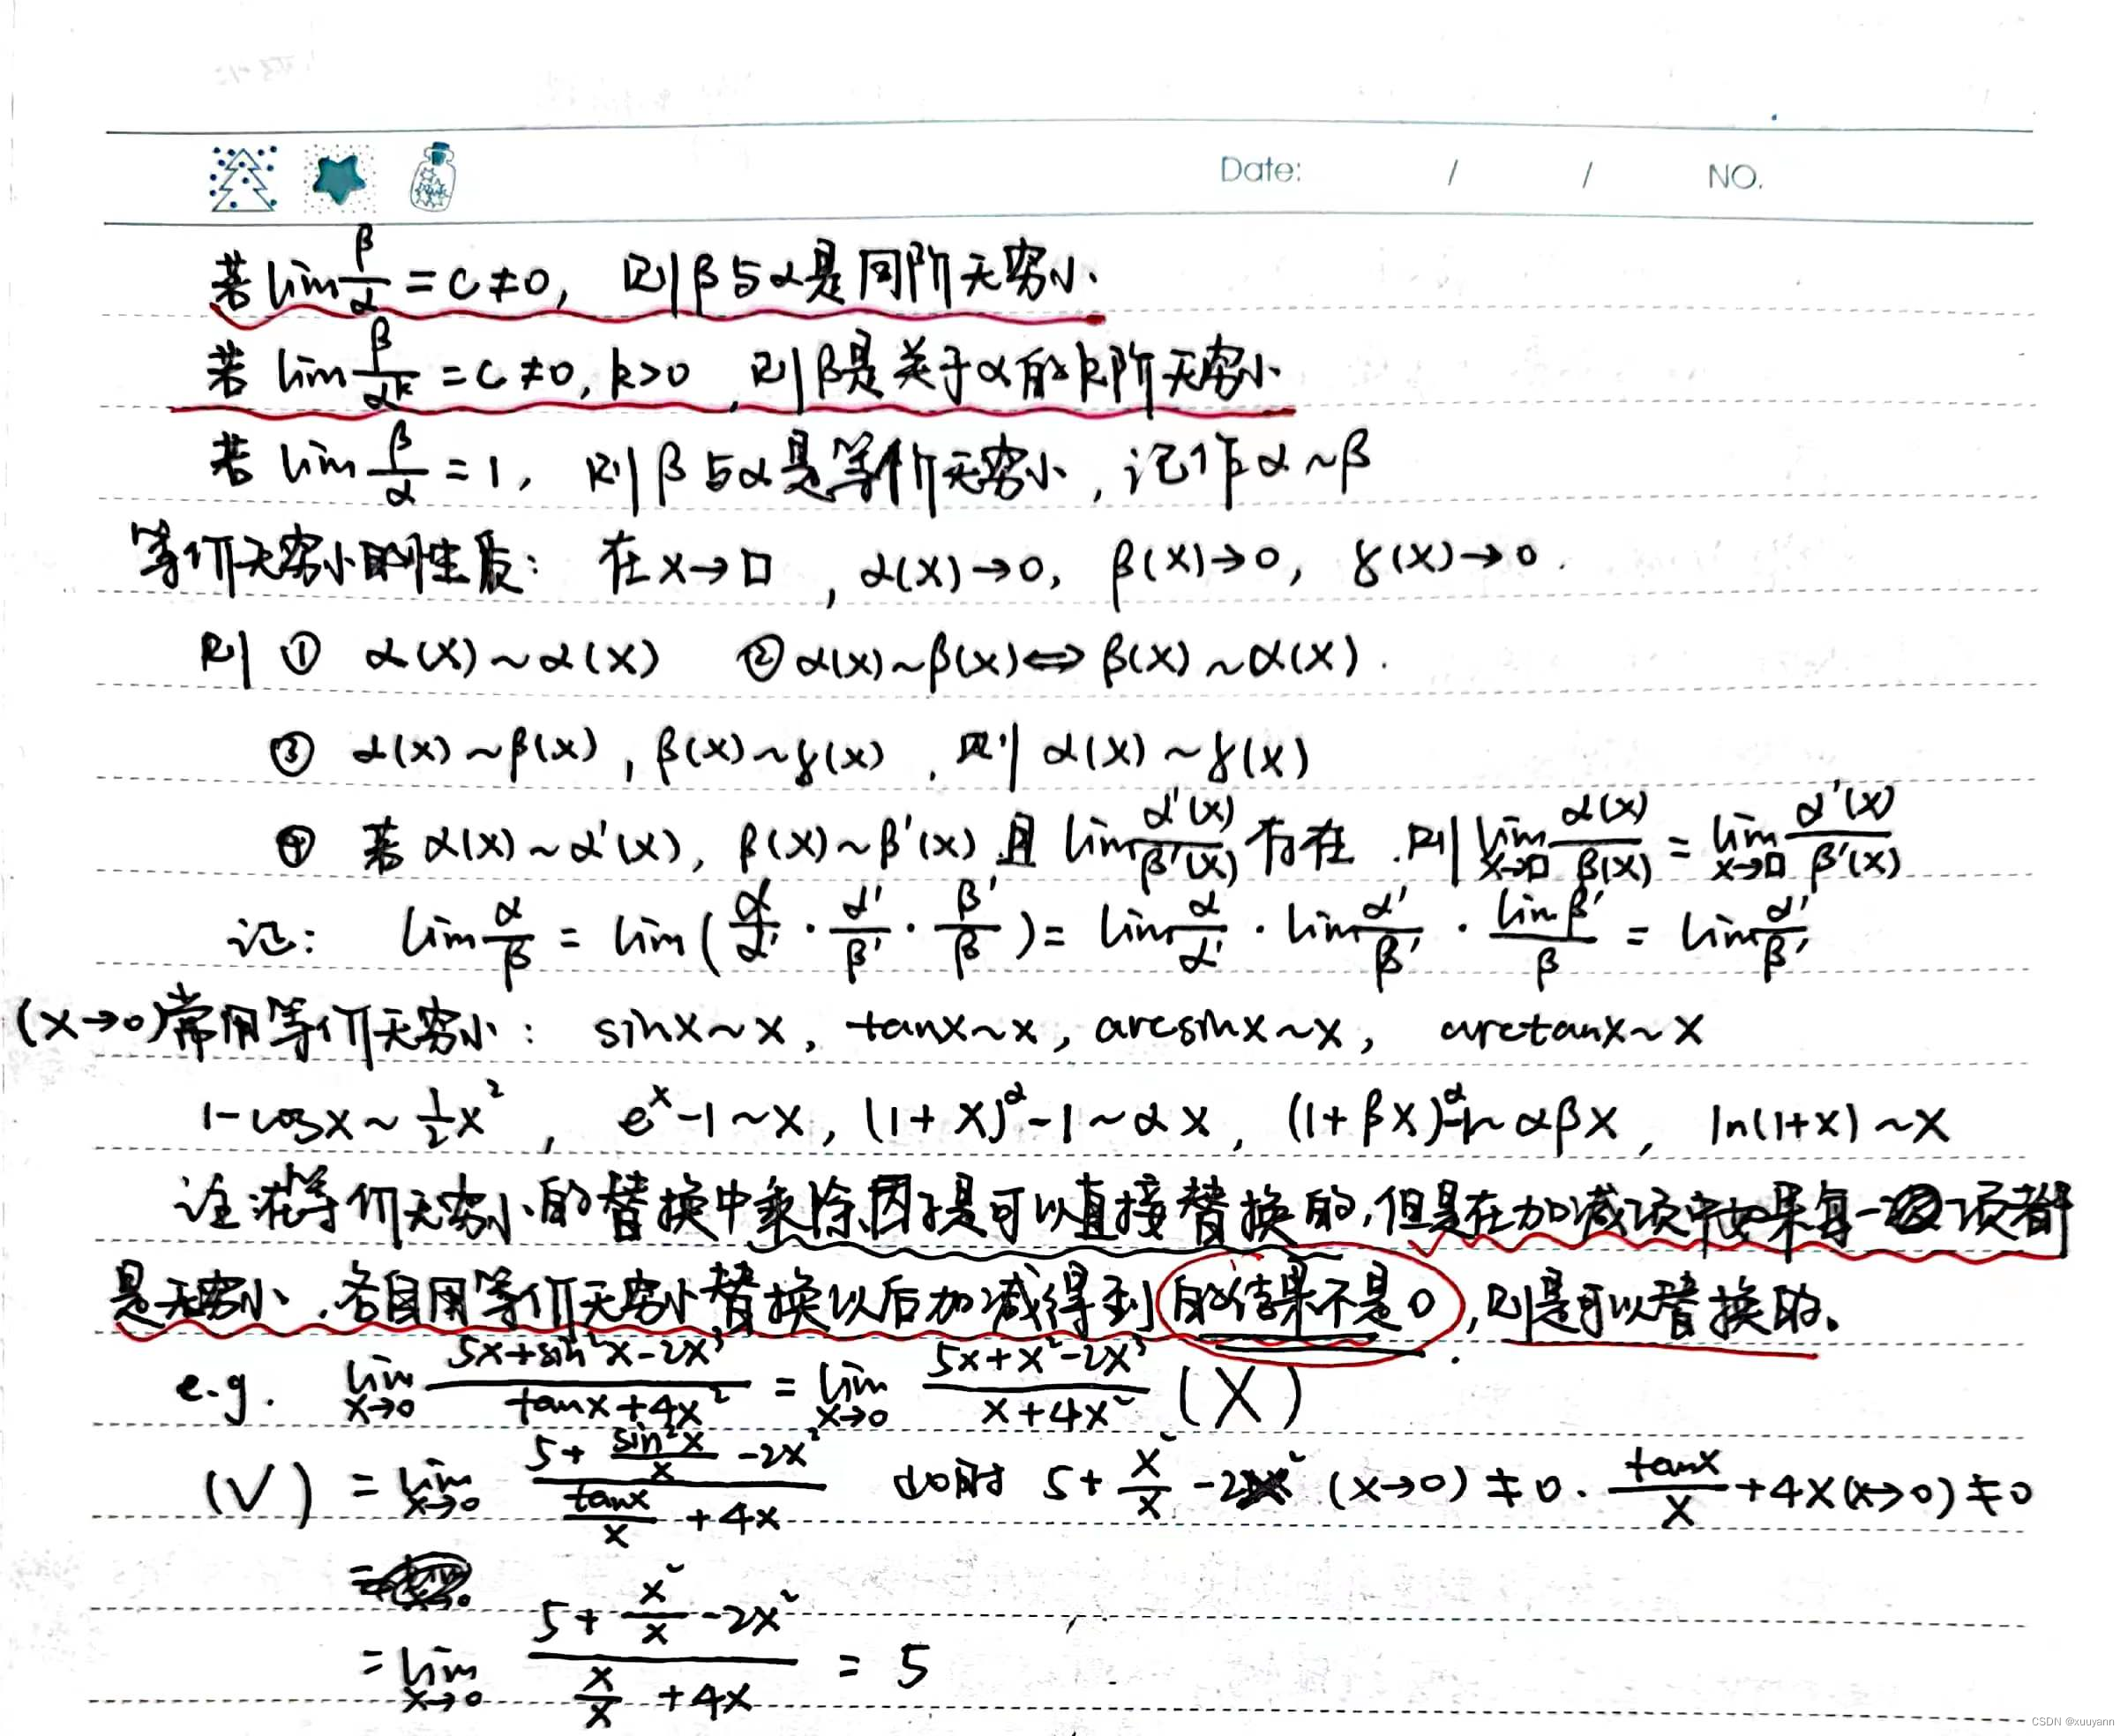 Date: / / NO.
若 lim β/α = c ≠ 0, 则 β 与 α 是同阶无穷小.
若 lim β/α^k = c ≠ 0, k>0, 则 β是关于α的k阶无穷小
若 lim β/α = 1, 则 β 与 α 是等价无穷小, 记作 α ~ β
等价无穷小的性质: 在 x→□, α(x)→0, β(x)→0, γ(x)→0.
则 ① α(x) ~ α(x) ② α(x) ~ β(x) ⇔ β(x) ~ α(x).
③ α(x) ~ β(x), β(x) ~ γ(x), 则 α(x) ~ γ(x)
④ 若 α(x) ~ α'(x), β(x) ~ β'(x) 且 lim α'(x)/β'(x) 存在. 则 lim x→□ α(x)/β(x) = lim x→□ α'(x)/β'(x)
记: lim α/β = lim (α/α' · α'/β' · β'/β) = lim α/α' · lim α'/β' · lim β'/β = lim α'/β'
(x→0) 常用等价无穷小: sinx ~ x, tanx ~ x, arcsinx ~ x, arctanx ~ x
1-cosx ~ 1/2 x², e^x-1 ~ x, (1+x)^α-1 ~ αx, (1+βx)^α-1 ~ αβx, ln(1+x) ~ x
注: 在等价无穷小的替换中乘除因子是可以直接替换的, 但是在加减项中如果每一项都
是无穷小, 各自用等价无穷小替换以后加减得到的结果不是0, 则是可以替换的.
e.g. lim x→0 (5x+sin²x-2x³)/(tanx+4x²) = lim x→0 (5x+x²-2x³)/(x+4x²) (X)
(V) = lim x→0 (5+sin²x/x-2x²)/(tanx/x+4x) 此时 5+x²/x-2x² (x→0) ≠ 0. tanx/x+4x(x→0) ≠ 0
= lim x→0 (5+x²/x-2x²)/(x/x+4x) = 5
CSDN @xuuyann